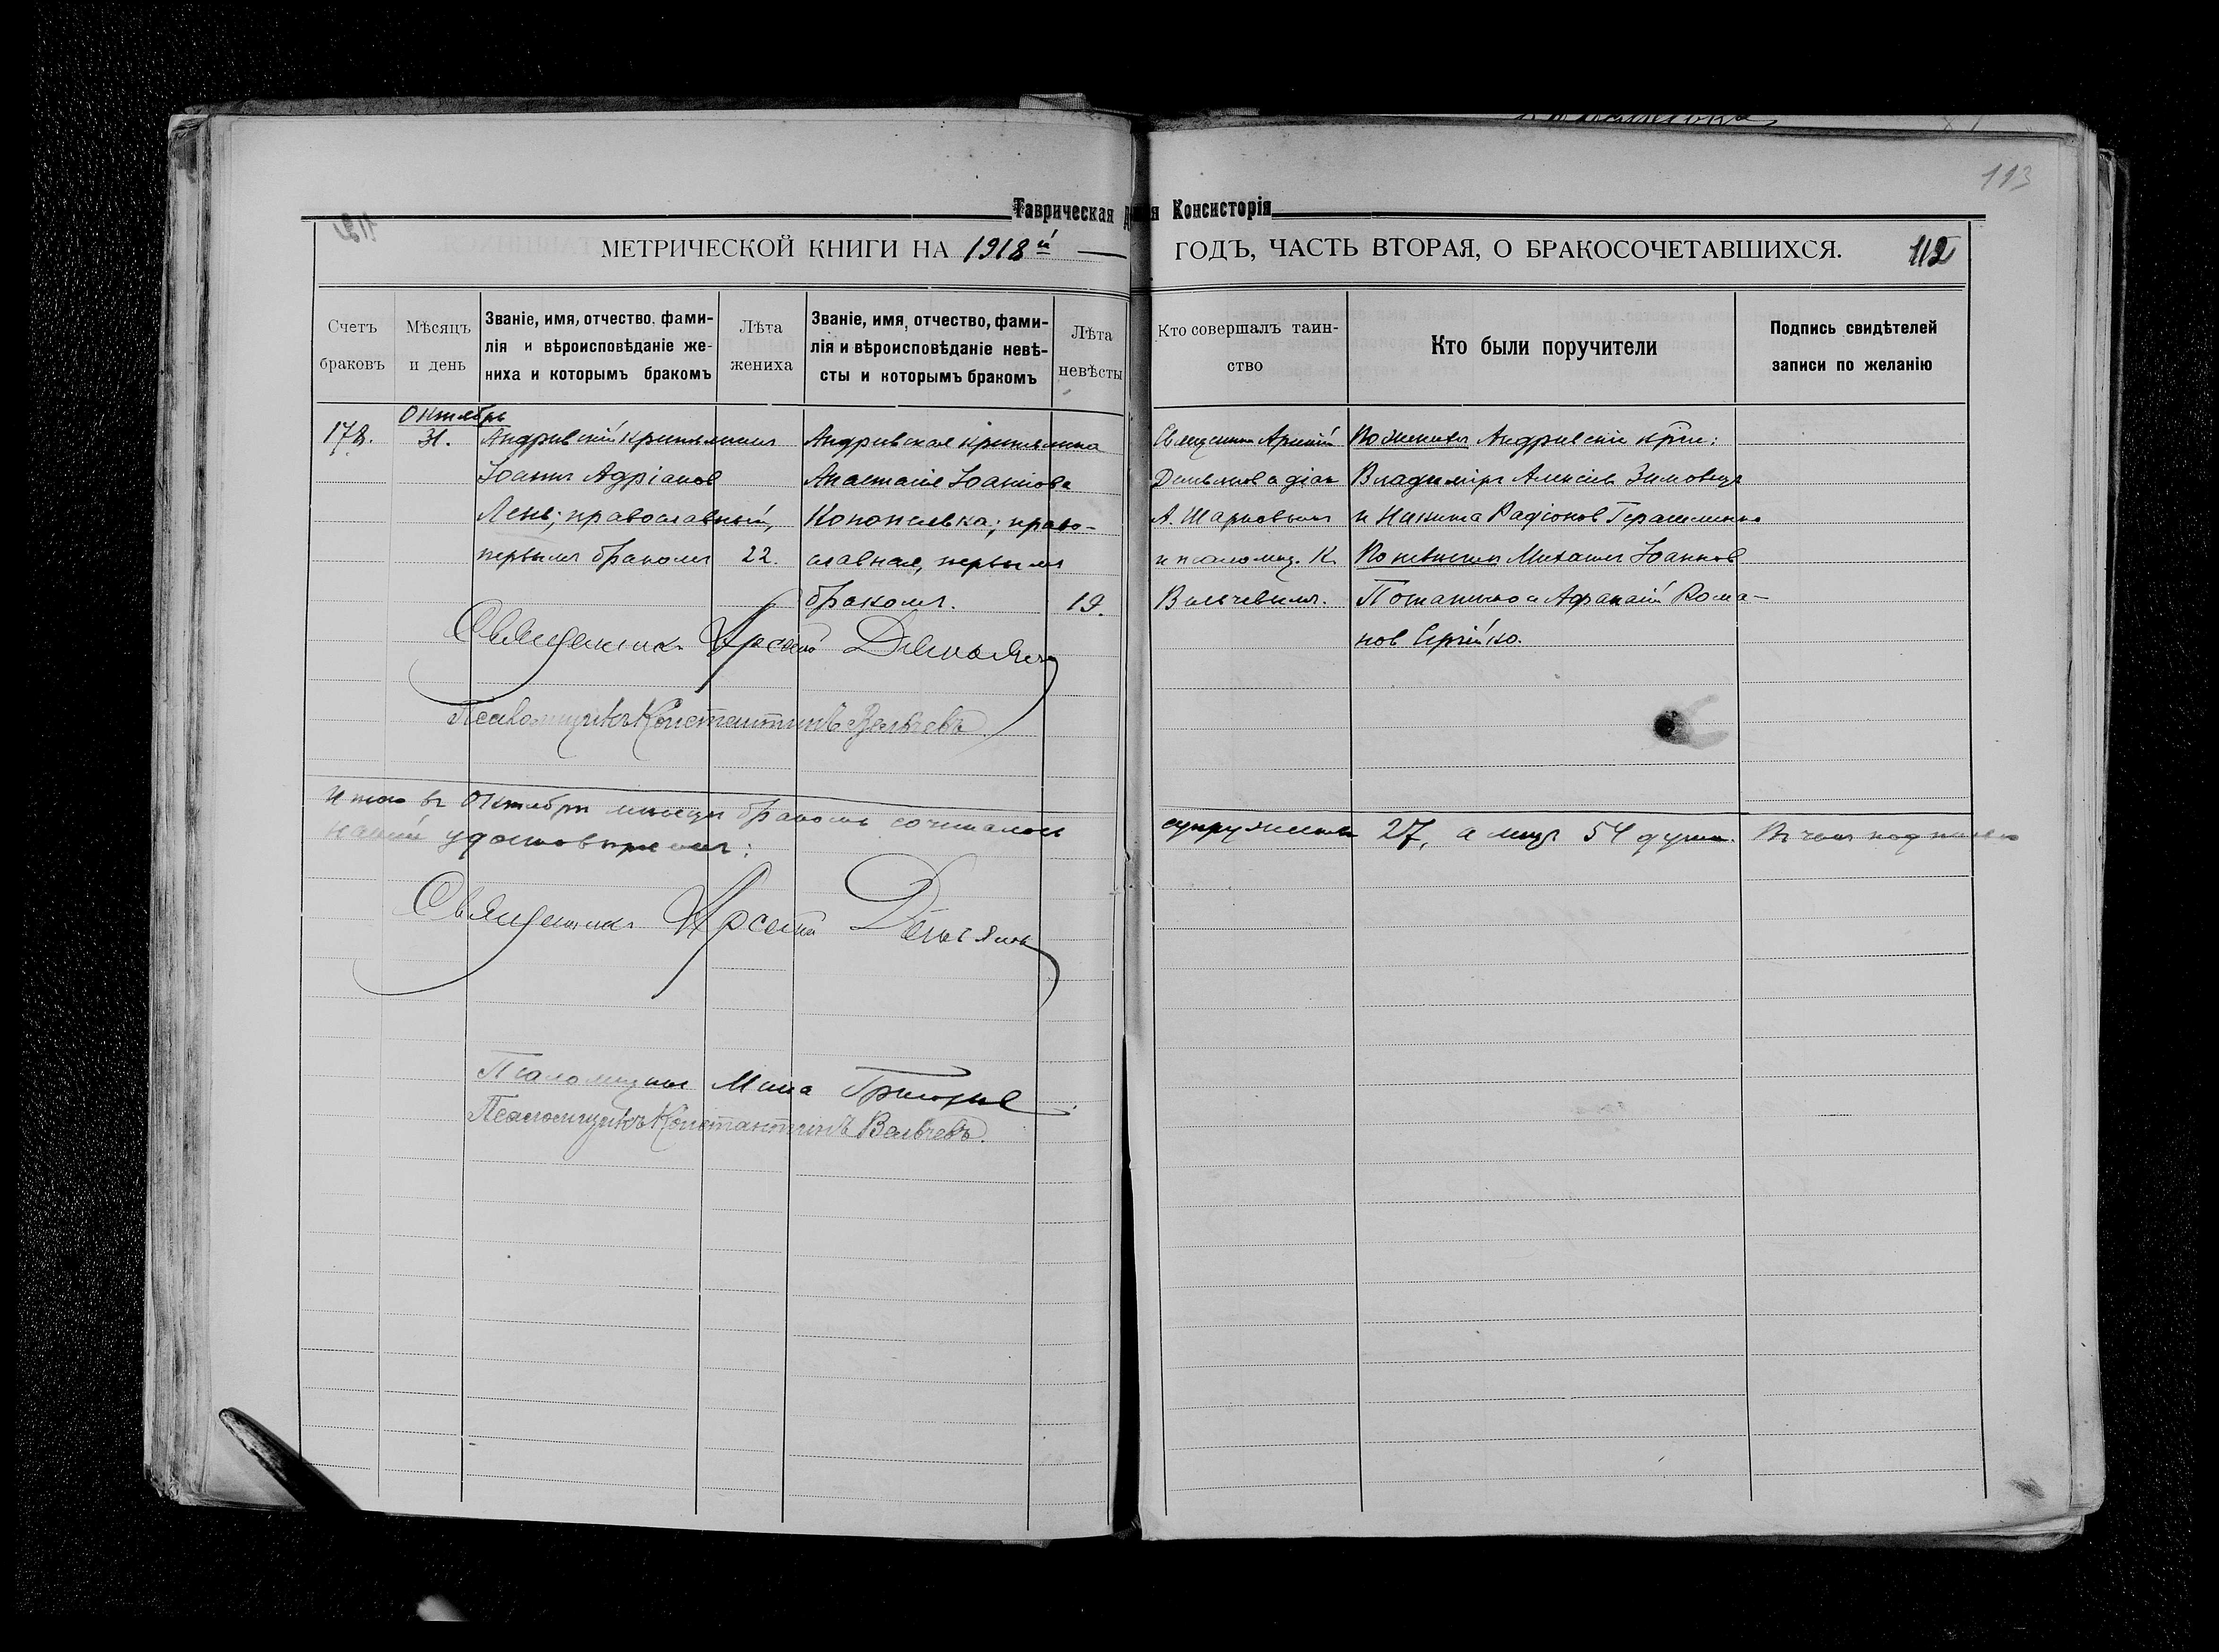 113
Таврическая Д я Консисторія
МЕТРИЧЕСКОЙ КНИГИ НА 1918й ГОДЪ, ЧАСТЬ ВТОРАЯ, О БРАКОСОЧЕТАВШИХСЯ. 112
Счетъ браковъ
Мѣсяцъ и день
Званіе, имя, отчество, фами-
лія и вѣроисповѣданіе же-
ниха и которымъ бракомъ
Лѣта жениха
Званіе, имя, отчество, фами-
лія и вѣроисповѣданіе невѣ-
сты и которымъ бракомъ
Лѣта невѣсты
Кто совершалъ таин-
ство
Кто были поручители
Подпись свидѣтелей
записи по желанію
178.
Октябрь
31.
Андреевскій крестьянинъ
Іоаннъ Адріановъ
Лень; православный,
первымъ бракомъ
22.
Андреевская крестьянка
Анастасія Іоаннова
православная, первымъ
бракомъ.
19.
Священникъ Арсеній
А. Шарковымъ
и псаломщ. К.
Вальчевымъ.
По женихѣ Андреевскіе крес:
Владиміръ Алексѣевъ Зимовецъ
и Никита Радіоновъ Герасименко
По невѣстѣ Михаилъ Іоанновъ
Потапенко и Афанасій Рома-
новъ Сергійко.
Священникъ Арсеній Демьяновъ
Псаломщикъ Константинъ Вальчевъ
Итого въ Октябрѣ мѣсяцѣ бракомъ сочеталось супружествъ 27, а лицъ 54 души. Въ чемъ подписью
нашей удостовѣряемъ:
Священникъ Арсеній Демьяновъ
Псаломщикъ Мина
Псаломщикъ Константинъ Вальчевъ.